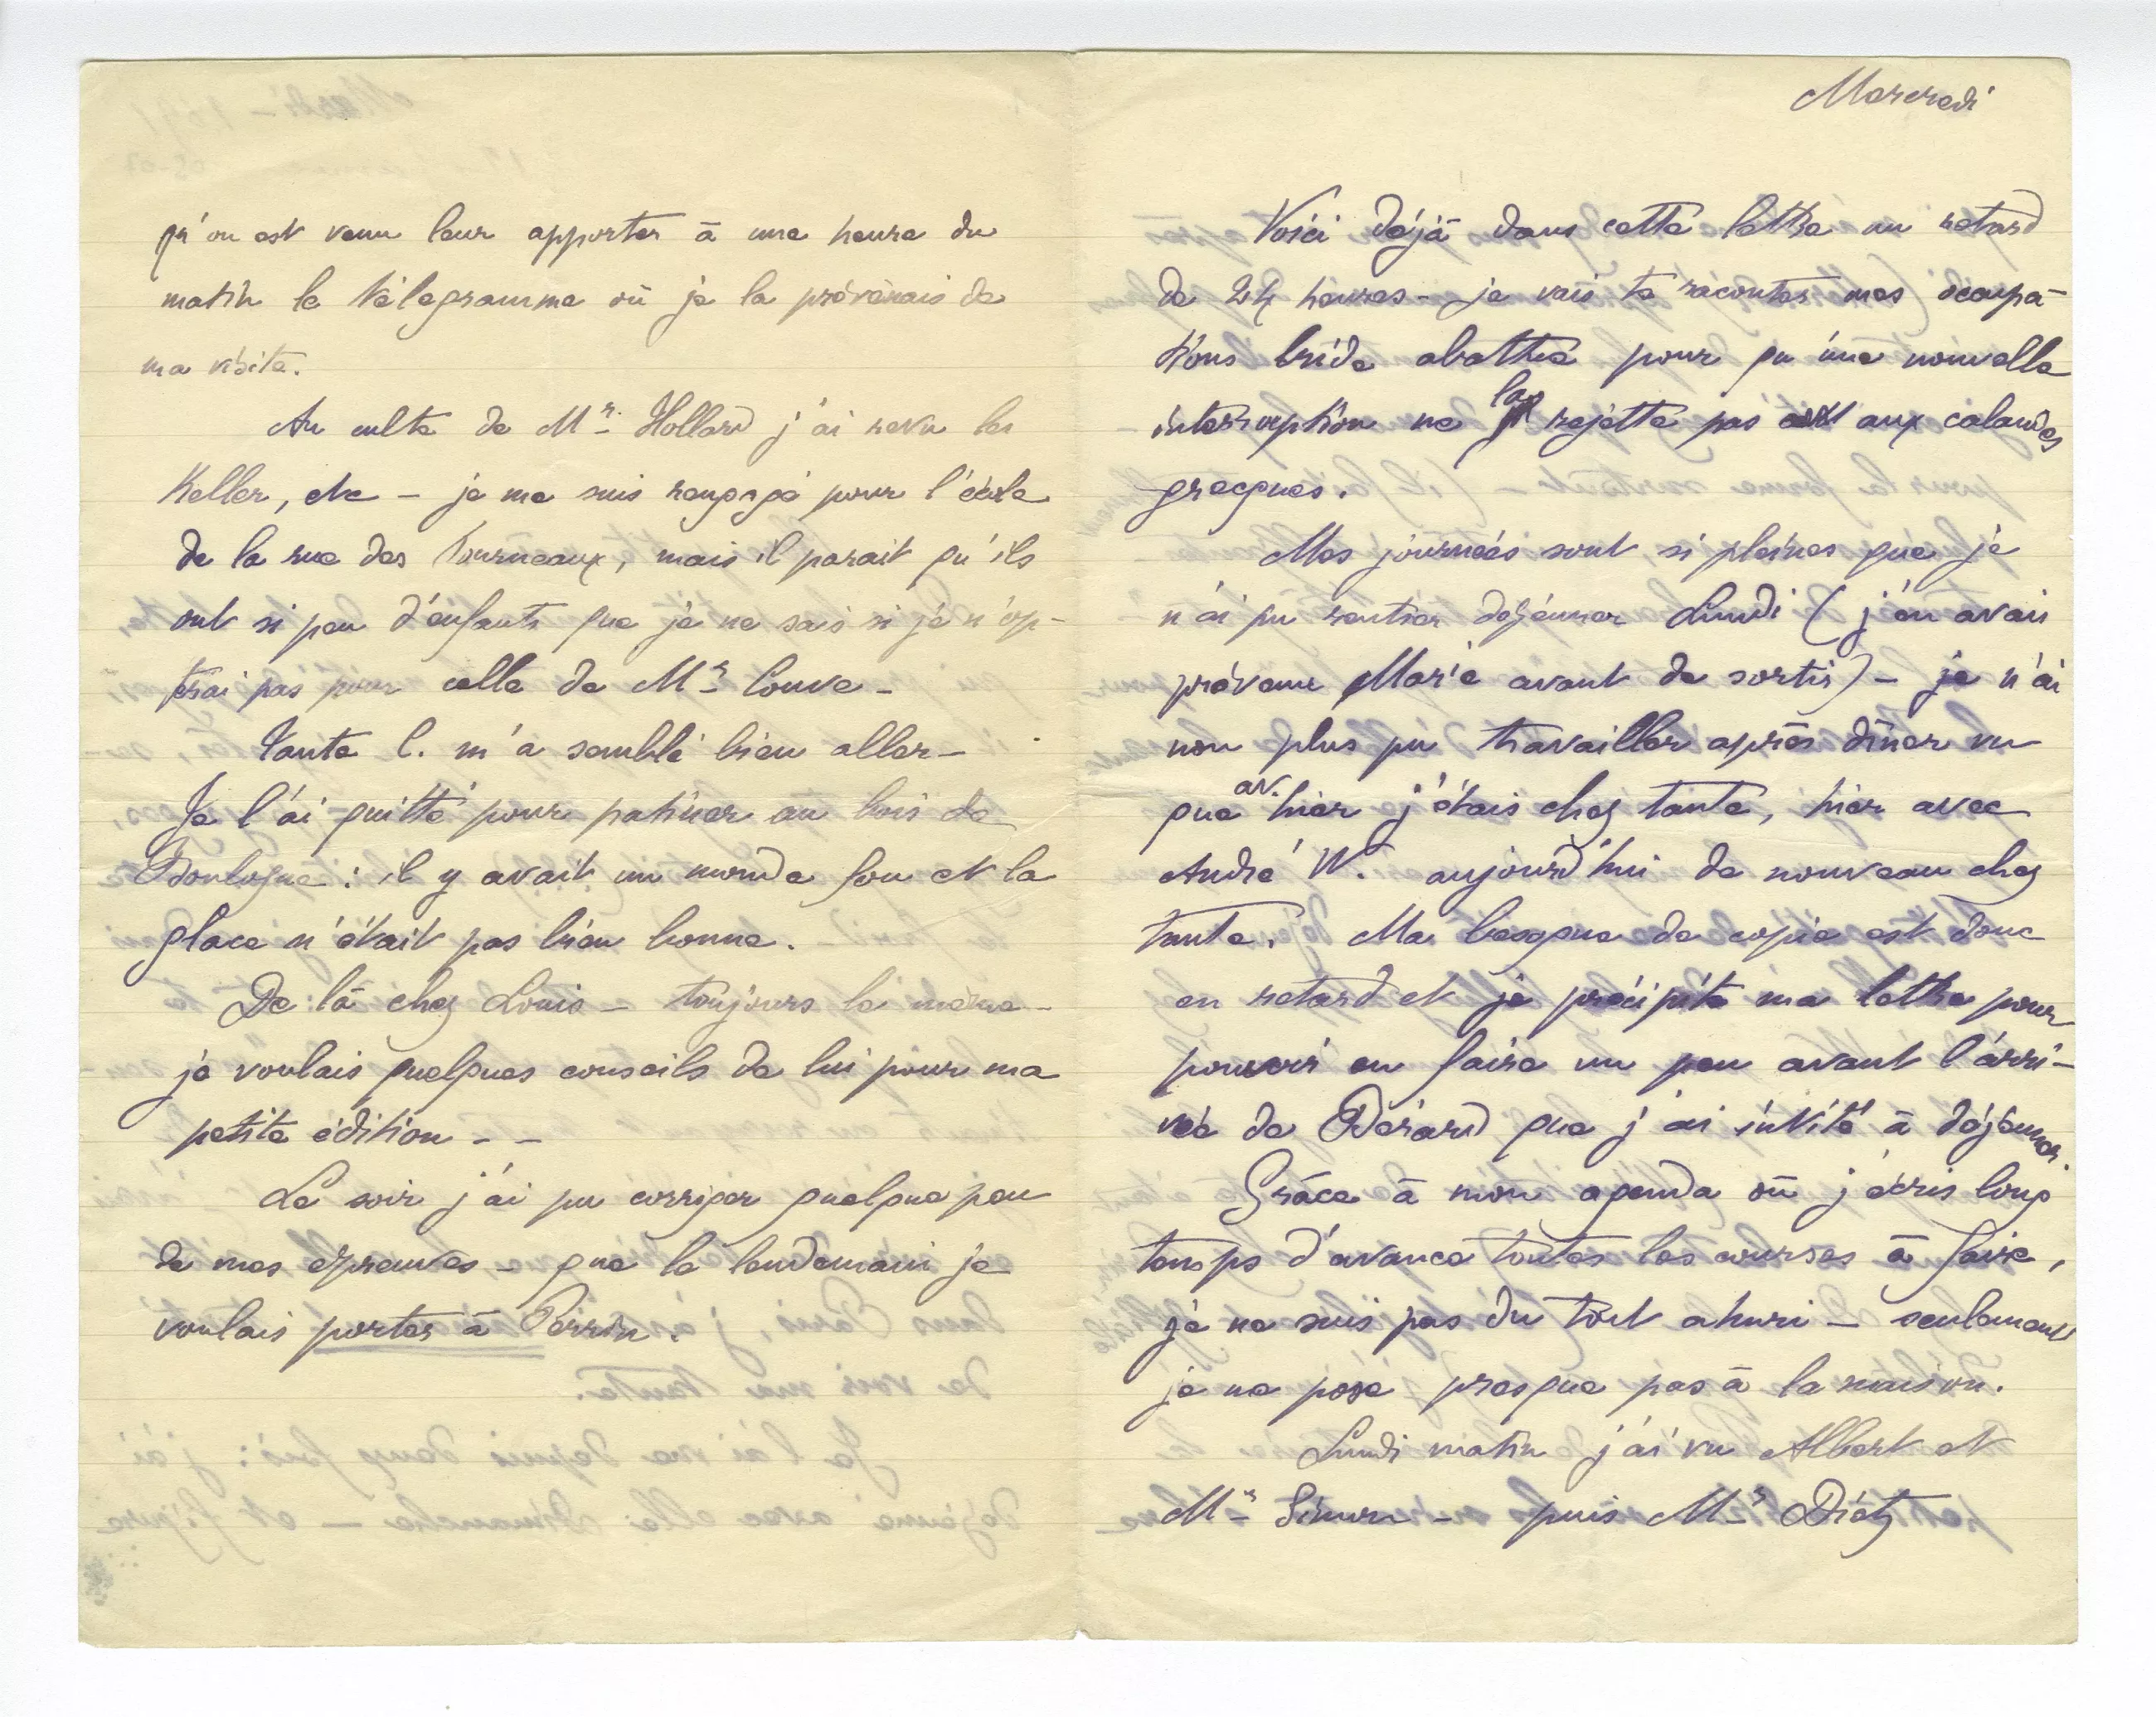 qu'on est venu leur apporter à une heure du
matin le télegramme où je la prévenais de
ma visite.
Au culte de Mr. Hollard j'ai revu les
Keller, etc – je me suis rengagé pour l'école
de la rue des Fourneaux, mais il parait qu'ils
ont si peu d'enfants que je ne sais si je n'op-
terai pas pour celle de Mr Couve –
Tante C. m'a semblé bien aller –
Je l'ai quitté pour patiner au bois de
Boulogne : il y avait un monde fou et la
glace n'était pas bien bonne.
De là chez Louis – toujours le même –
je voulais quelques conseils de lui pour ma
petite édition – –
Le soir j'ai pu corriger quelque peu
de mes épreuves – que le lendemain je
voulais porter à Perrin.
Mercredi
Voici déjà dans cette lettre un retard
de 24 heures – je vais te raconter mes occupa-
tions bride abattue pour qu'une nouvelle
interruption ne la rejette pas aux calendes
grecques.
Mes journées sont si pleines que je
n'ai pu rentrer déjeuner Lundi (j'en avais
prévenu Marie avant de sortir) – je n'ai
non plus pu travailler après dîner vu
que av. hier j'étais chez tante, hier avec
André W. aujourd'hui de nouveau chez
tante. Ma besogne de copie est donc
en retard et je précipite ma lettre pour
pouvoir en faire un peu avant l'arri-
vée de Bérard que j'ai invité à déjeuner.
Grâce à mon agenda où j'écris long
temps d'avance toutes les courses à faire,
je ne suis pas du tout ahuri – seulement
je ne pose presque pas à la maison.
Lundi matin j'ai vu Albert et
Mr Simon – puis Mr Diétz